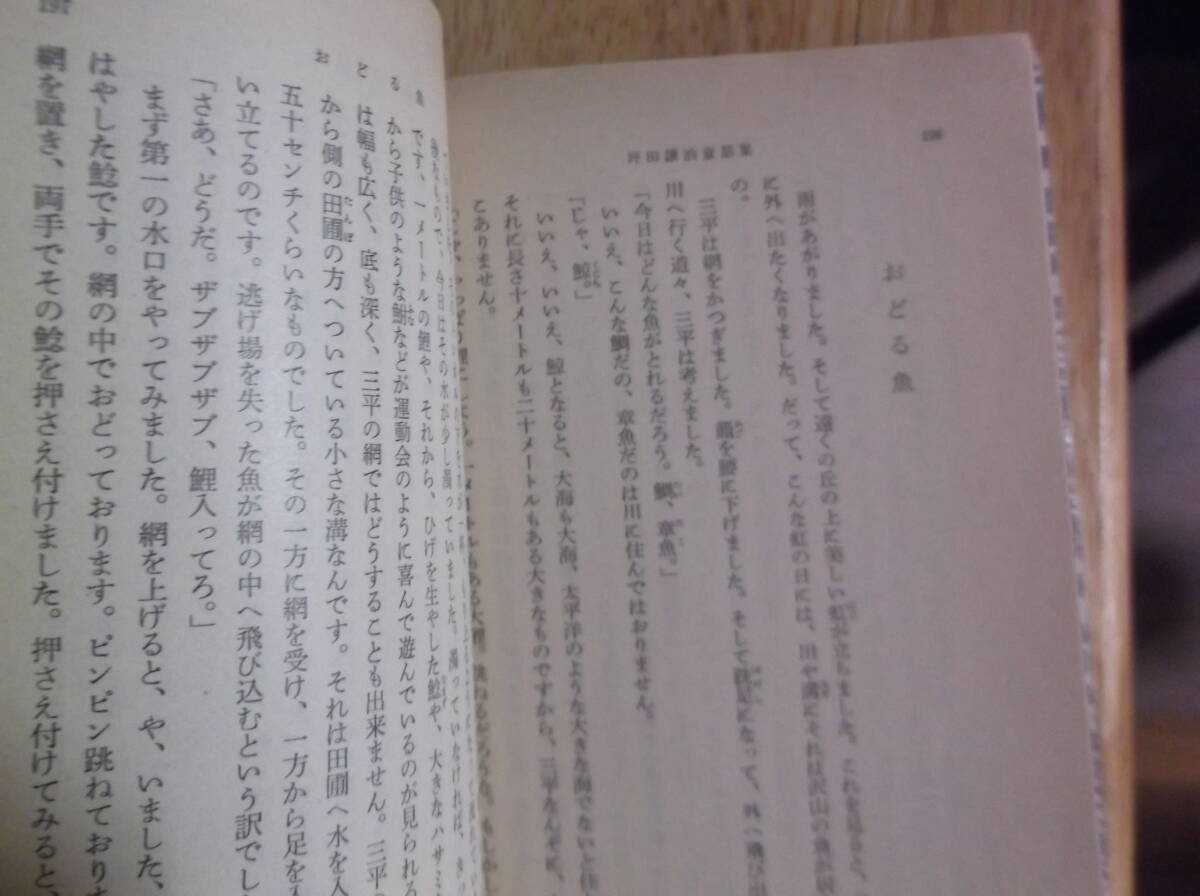 196
坪田譲治童話集
おどる魚
雨があがりました。そして遠くの丘の上に美しい虹が立ちました。これを見ると、
に外へ出たくなりました。だって、こんな虹の日には、川や溝にそれは沢山の魚が居
の。
三平は網をかつぎました。籠を腰に下げました。そして跣足になって、外へ飛び出
川へ行く道々、三平は考えました。
「今日はどんな魚がとれるだろう。鯛、章魚。」
いいえ、こんな鯛だの、章魚だのは川に住んではおりません。
「じゃ、鯨。」
いいえ、いいえ、鯨となると、大海も大海、太平洋のような大きな海でないと住
それに長さ十メートルも二十メートルもある大きなものですから、三平なんぞに、
こありません。
197
おどる魚
今日はその水が少し濁っていました。濁っていなければ、
です。一メートルの鯉や、それから、ひげを生やした鯰や、大きなハサミ
から子供のような鮒などが運動会のように喜んで遊んでいるのが見られる
は幅も広く、底も深く、三平の網ではどうすることも出来ません。三平
から側の田圃の方へついている小さな溝なんです。それは田圃へ水を入
五十センチくらいなものでした。その一方に網を受け、一方から足を入
い立てるのです。逃げ場を失った魚が網の中へ飛び込むという訳でし
「さあ、どうだ。ザブザブザブ、鯉入ってろ。」
まず第一の水口をやってみました。網を上げると、や、いました、
はやした鯰です。網の中でおどっております。ピンピン跳ねており
網を置き、両手でその鯰を押さえ付けました。押さえ付けてみると、